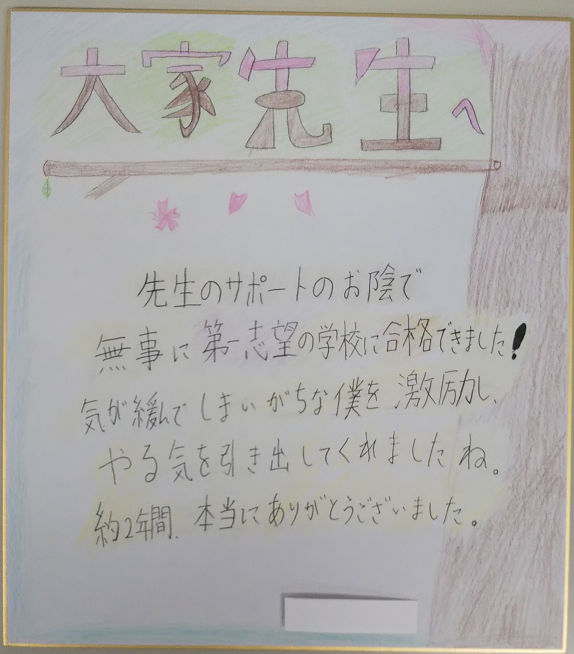 大家先生へ
先生のサポートのお陰で
無事に第一志望の学校に合格できました!
気が緩んでしまいがちな僕を激励し、
やる気を引き出してくれましたね。
約2年間、本当にありがとうございました。